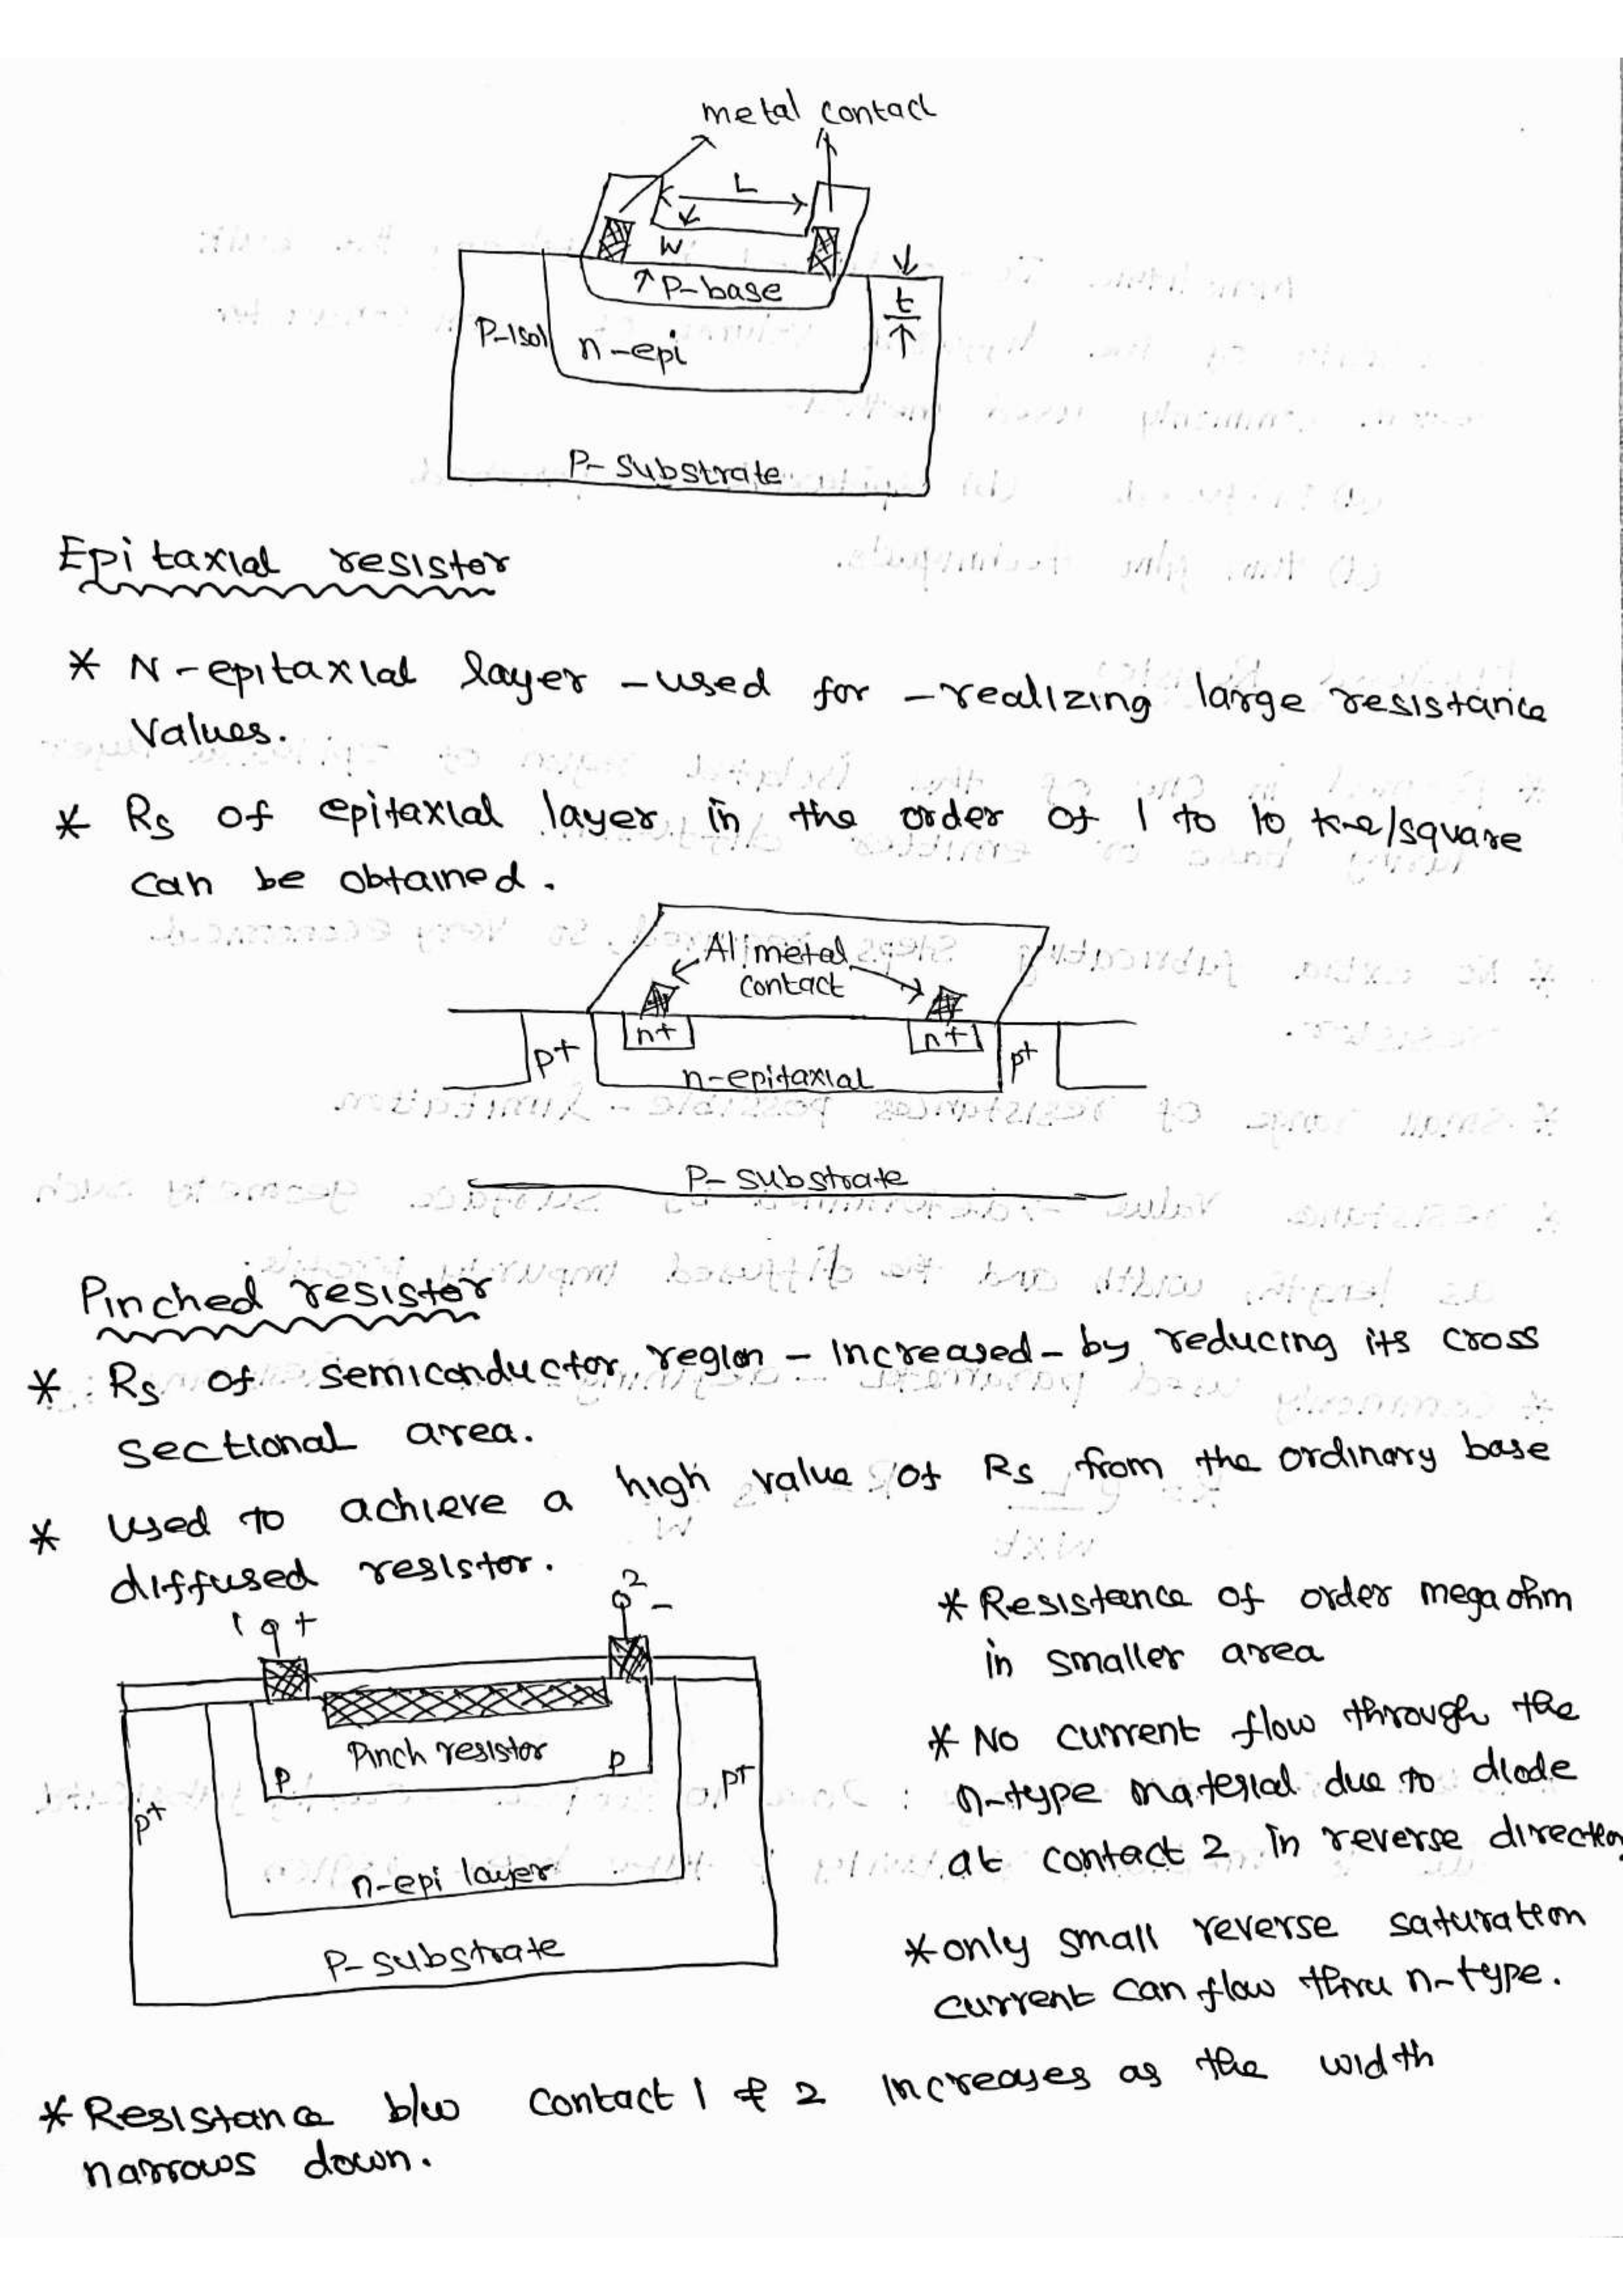 metal contact
L
W
P-base
t
P-Isol
n-epi
P-Substrate
Epitaxial resistor
* N-epitaxial layer - used for - realizing large resistance
Values.
* Rs of epitaxial layer in the order of 1 to 10 kΩ/square
can be obtained.
Al metal
contact
n+ n+
p+ p+
n-epitaxial
P-substrate
Pinched resistor
* Rs of semiconductor region - Increased - by reducing its cross
sectional area.
* used to achieve a high value of Rs from the ordinary base
diffused resistor.
1 + 2 -
Pinch resistor
P P
p+ p+
n-epi layer
P-substrate
* Resistance of order mega ohm
in smaller area
* No current flow through the
n-type material due to diode
at contact 2 in reverse direction
* only small reverse saturation
current can flow thru n-type.
* Resistance b/w contact 1 & 2 Increases as the width
narrows down.